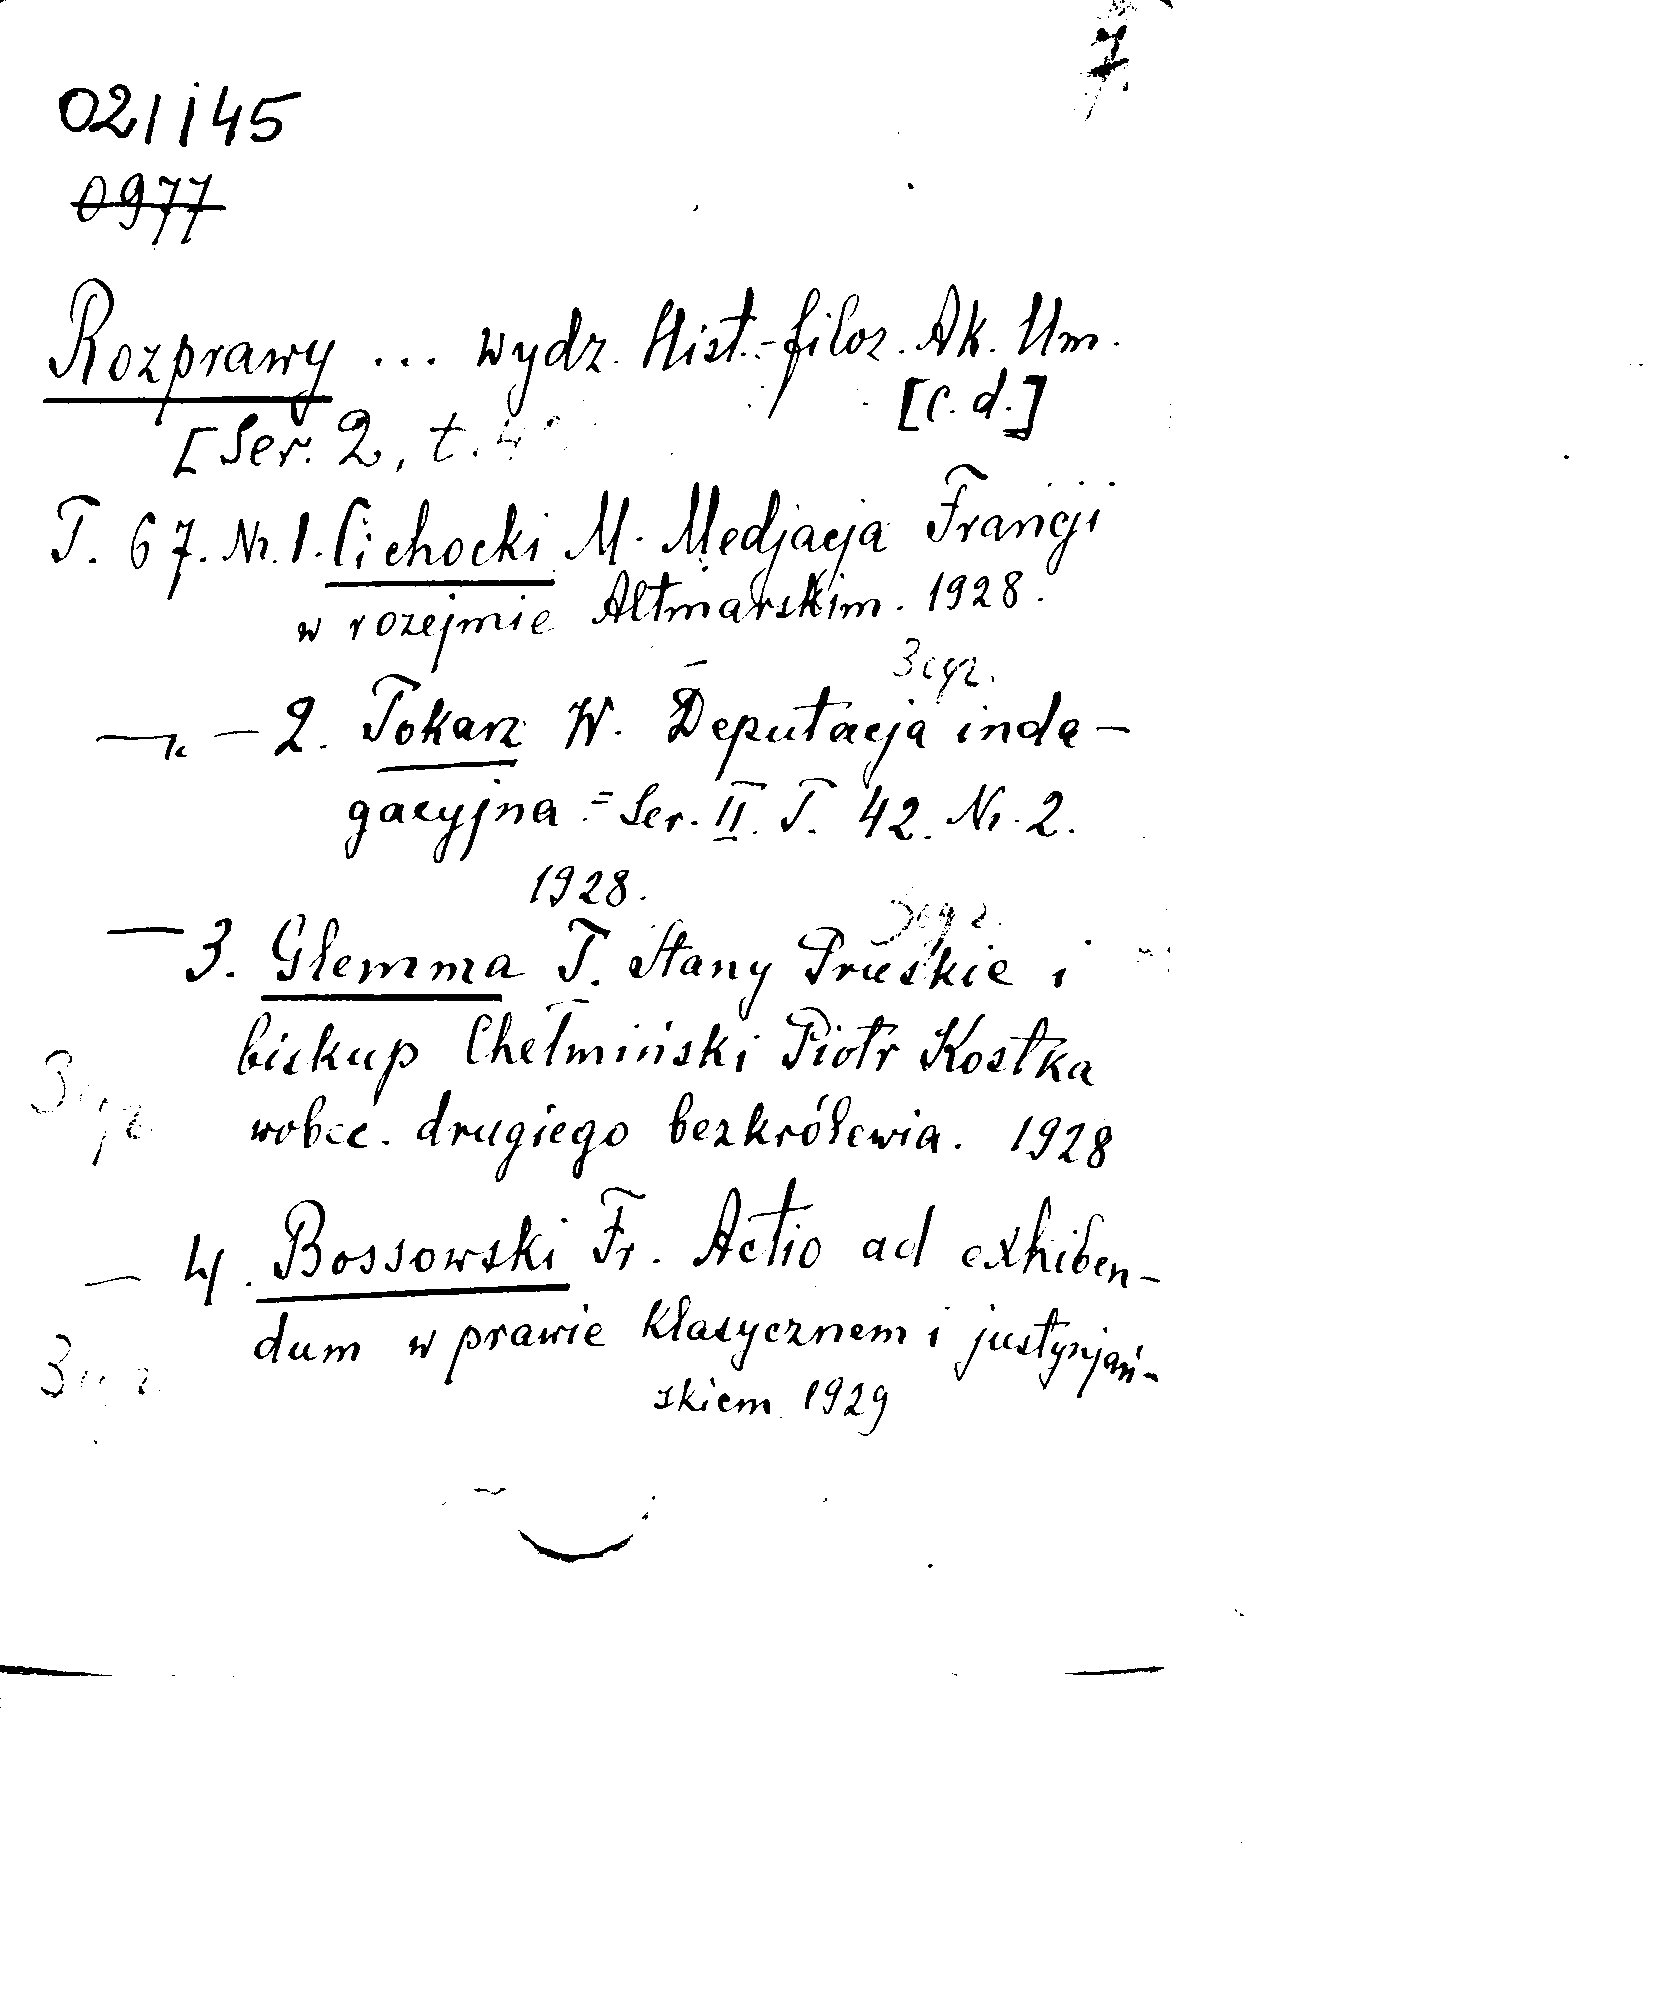 7.
021145
0977
Rozprawy ... wydz. Hist.-filoz. Ak. Um.
[c. d.]
[Ser. 2, t. 4
T. 67. Nr. 1. Cichocki M. Medjacja Francji
w rozejmie Altmarskim. 1928.
3 egz.
— " — 2. Tokarz W. Deputacja inda-
gacyjna = Ser. II. T. 42. Nr. 2.
1928.
3 egz.
— 3. Glemma T. Stany Pruskie i
biskup Chełmiński Piotr Kostka
wobec. drugiego bezkrólewia. 1928
3 egz.
— 4. Bossowski Fr. Actio ad exhiben-
dum w prawie klasycznem i justynjań-
skiem 1929
3 egz.